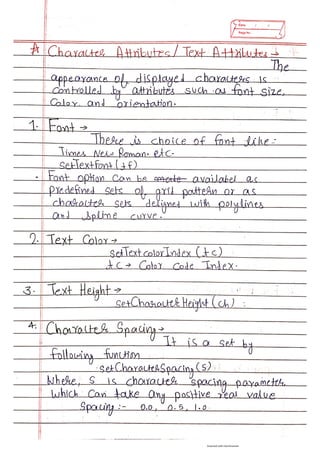 Date
Page No.
* Character Attributes / Text Attributes →
The
appearance of displayed characters is
controlled by attributes such as font size,
Color and orientation.
1. Font →
There is choice of font like :-
Times New Roman. etc.
setTextFont (tf)
• Font option can be availabel as
predefined sets of grid pattern or as
character sets designed with polylines
and spline curve.
2. Text Color →
setTextcolorIndex (tc)
tc → Color Code Index.
3. Text Height →
setCharacterHeight (ch) :
4. Character Spacing →
It is a set by
following function
setCharacterSpacing (s)
Where, S is character spacing parameter,
which can take any positive real value
Spacing :- 0.0, 0.5, 1.0
Scanned with CamScanner